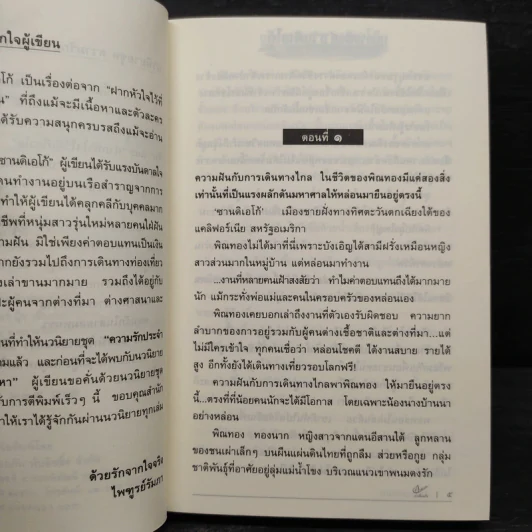 กใจผู้เขียน
ก้ เป็นเรื่องต่อจาก "ฝากหัวใจไว้ที่
น" ที่ถึงแม้จะมีเนื้อหาและตัวละคร
ด้รับความสนุกครบรสถึงแม้จะอ่าน
ซานดิเอโก้" ผู้เขียนได้รับแรงบันดาลใจ
คนทำงานอยู่บนเรือสำราญจากการ
ทำให้ผู้เขียนได้คลุกคลีกับบุคคลมาก
ชีพที่หนุ่มสาวรุ่นใหม่หลายคนใฝ่ฝัน
วามฝัน มิใช่เพียงค่าตอบแทนเป็นเงิน
ากยังรวมไปถึงการเดินทางท่องเที่ยว
องเล่าขานมากมาย รวมถึงได้อยู่กับ
ะผู้คนจากต่างที่มา ต่างศาสนาและ
นที่ทำให้นวนิยายชุด "ความรักประจำ
ามแล้ว และก่อนที่จะได้พบกับนวนิยาย
หา" ผู้เขียนขอคั่นด้วยนวนิยายชุด
รับการตีพิมพ์เร็วๆ นี้ ขอบคุณสำนัก
าให้เราได้รู้จักกันผ่านนวนิยายทุกเล่ม
ด้วยรักจากใจจริง
ไพฑูรย์รัมภา
ตอนที่ ๑
ความฝันกับการเดินทางไกล ในชีวิตของพิณทองมีแค่สองสิ่ง
เท่านั้นที่เป็นแรงผลักดันมหาศาลให้หล่อนมายืนอยู่ตรงนี้
'ซานดิเอโก้' เมืองชายฝั่งทางทิศตะวันตกเฉียงใต้ของ
แคลิฟอร์เนีย สหรัฐอเมริกา
พิณทองไม่ได้มาที่นี่เพราะบังเอิญได้สามีฝรั่งเหมือนหญิง
สาวส่วนมากในหมู่บ้าน แต่หล่อนมาทำงาน
...งานที่หลายคนเฝ้าสงสัยว่า ทำไมค่าตอบแทนถึงได้มากมาย
นัก แม้กระทั่งพ่อแม่และคนในครอบครัวของหล่อนเอง
พิณทองเคยบอกเล่าถึงงานที่ตัวเองรับผิดชอบ ความยาก
ลำบากของการอยู่ร่วมกับผู้คนต่างเชื้อชาติและต่างที่มา...แต่
ไม่มีใครเข้าใจ ทุกคนเชื่อว่า หล่อนโชคดี ได้งานสบาย รายได้
สูง อีกทั้งยังได้เดินทางเที่ยวรอบโลกฟรี!
ความฝันกับการเดินทางไกลพาพิณทอง ให้มายืนอยู่ตรง
นี้...ตรงที่ที่น้อยคนนักจะได้มีโอกาส โดยเฉพาะน้องนางบ้านนา
อย่างหล่อน
พิณทอง ทองนาก หญิงสาวจากแดนอีสานใต้ ลูกหลาน
ของชนเผ่าเล็กๆ บนผืนแผ่นดินไทยที่ถูกลืม ส่วยหรือกูย กลุ่ม
ชาติพันธุ์ที่อาศัยอยู่ลุ่มแม่น้ำโขง บริเวณแนวเขาพนมดงรัก
๕